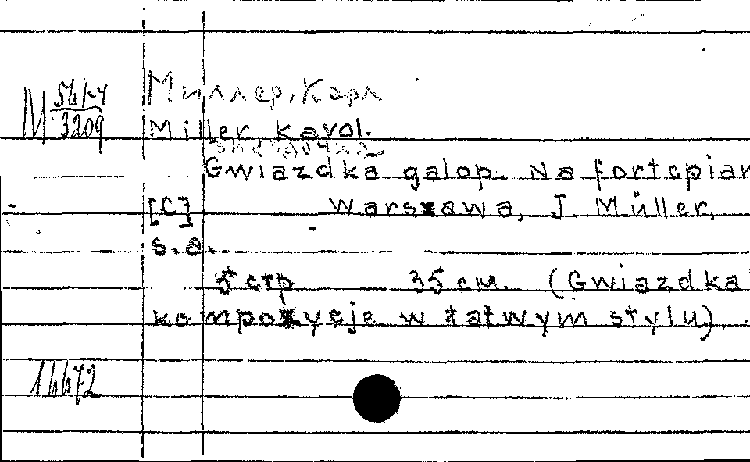 Миллер, Карл
M 56/14
3209
Miller Karol.
Gwiazdka galop. Na fortepian
[C] Warszawa, J. Müller,
s.a.
5 стр 35 см. (Gwiazdka
kompozycje w łatwym stylu).
16672